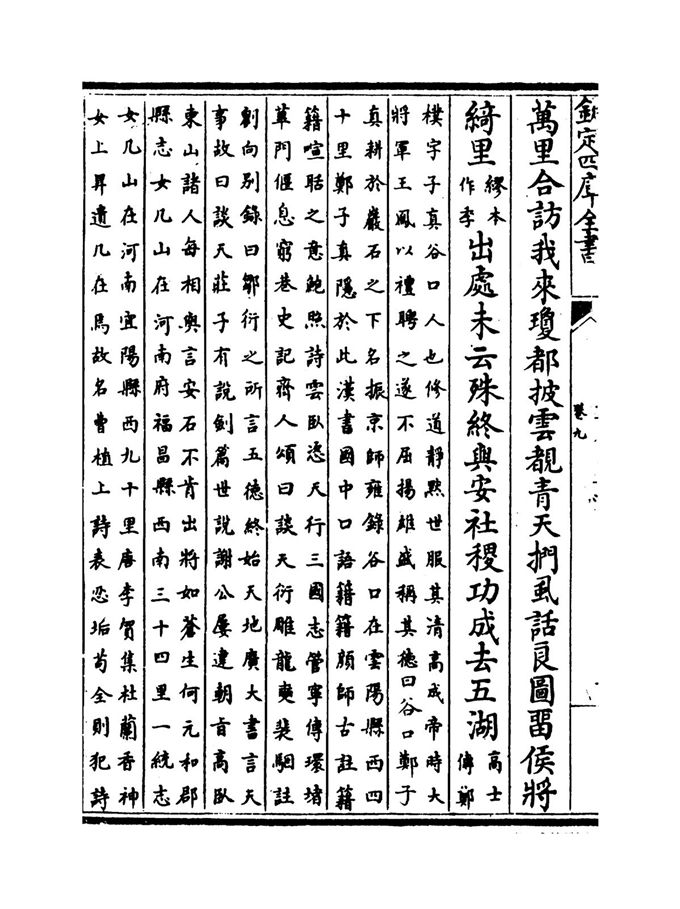 欽定四庫全書
卷九
萬里合訪我來瓊都披雲覩青天捫虱話良圖畱侯將
綺里繆本作季出處未云殊終與安社稷功成去五湖高士傳鄭
樸字子真谷口人也修道靜黙世服其清高成帝時大
將軍王鳳以禮聘之遂不屈揚雄盛稱其德曰谷口鄭子
真耕於巖石之下名振京師雍錄谷口在雲陽縣西四
十里鄭子真隱於此漢書國中口語籍籍顔師古註籍
籍喧聒之意鮑照詩雲臥恣天行三國志管寧傳環堵
蓽門偃息窮巷史記齊人頌曰談天衍雕龍奭裴駰註
劉向别錄曰鄒衍之所言五德終始天地廣大書言天
事故曰談天莊子有說劍篇世說謝公屢違朝旨高臥
東山諸人每相與言安石不肯出將如蒼生何元和郡
縣志女几山在河南府福昌縣西南三十四里一統志
女几山在河南宜陽縣西九十里唐李賀集杜蘭香神
女上昇遺几在焉故名曹植上詩表忍垢苟全則犯詩